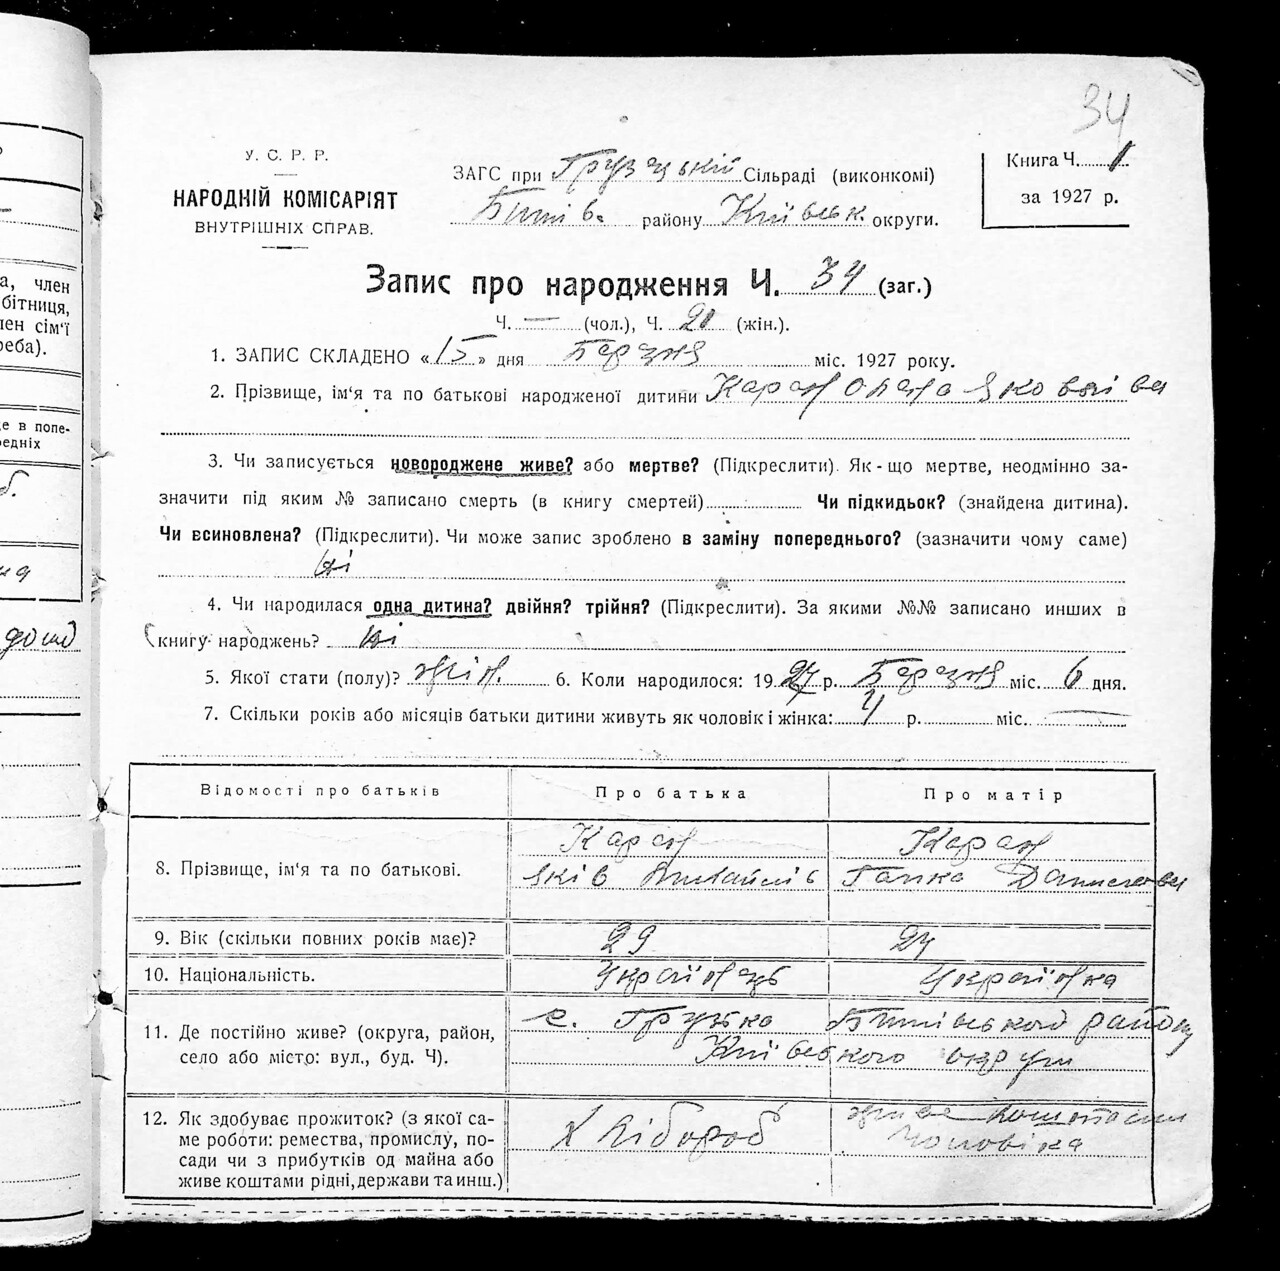 34
У. С. Р. Р.
НАРОДНІЙ КОМІСАРІЯТ
ВНУТРІШНІХ СПРАВ.
ЗАГС при Грузькій Сільраді (виконкомі)
Бишів. району Київськ. округи.
Книга Ч. 1
за 1927 р.
Запис про народження Ч. 34 (заг.)
Ч. — (чол.), Ч. 20 (жін.).
1. ЗАПИС СКЛАДЕНО «15» дня Березня міс. 1927 року.
2. Прізвище, ім'я та по батькові народженої дитини Каран Олена Яковлівна
3. Чи записується новороджене живе? або мертве? (Підкреслити). Як-що мертве, неодмінно за-
значити під яким № записано смерть (в книгу смертей) Чи підкидьок? (знайдена дитина).
Чи всиновлена? (Підкреслити). Чи може запис зроблено в заміну попереднього? (зазначити чому саме)
ні
4. Чи народилася одна дитина? двійня? трійня? (Підкреслити). За якими №№ записано инших в
книгу народжень? ні
5. Якої стати (полу)? жін. 6. Коли народилося: 1927 р. Березня міс. 6 дня.
7. Скільки років або місяців батьки дитини живуть як чоловік і жінка: 4 р. міс. —
Відомості про батьків Про батька Про матір
Каран Каран
8. Прізвище, ім'я та по батькові. Яків Михайлів Ганка
9. Вік (скільки повних років має)? 29 24
10. Національність. Українець Українка
с. Грузька Бишівського району
11. Де постійно живе? (округа, район,
Київського округи
село або місто: вул., буд. Ч).
12. Як здобуває прожиток? (з якої са-
ме роботи: ремества, промислу, по-
сади чи з прибутків од майна або
живе коштами рідні, держави та инш.)
Хлібороб живе коштами
чоловіка
а, член
бітниця,
лен сім'ї
реба).
е в попе-
едніх